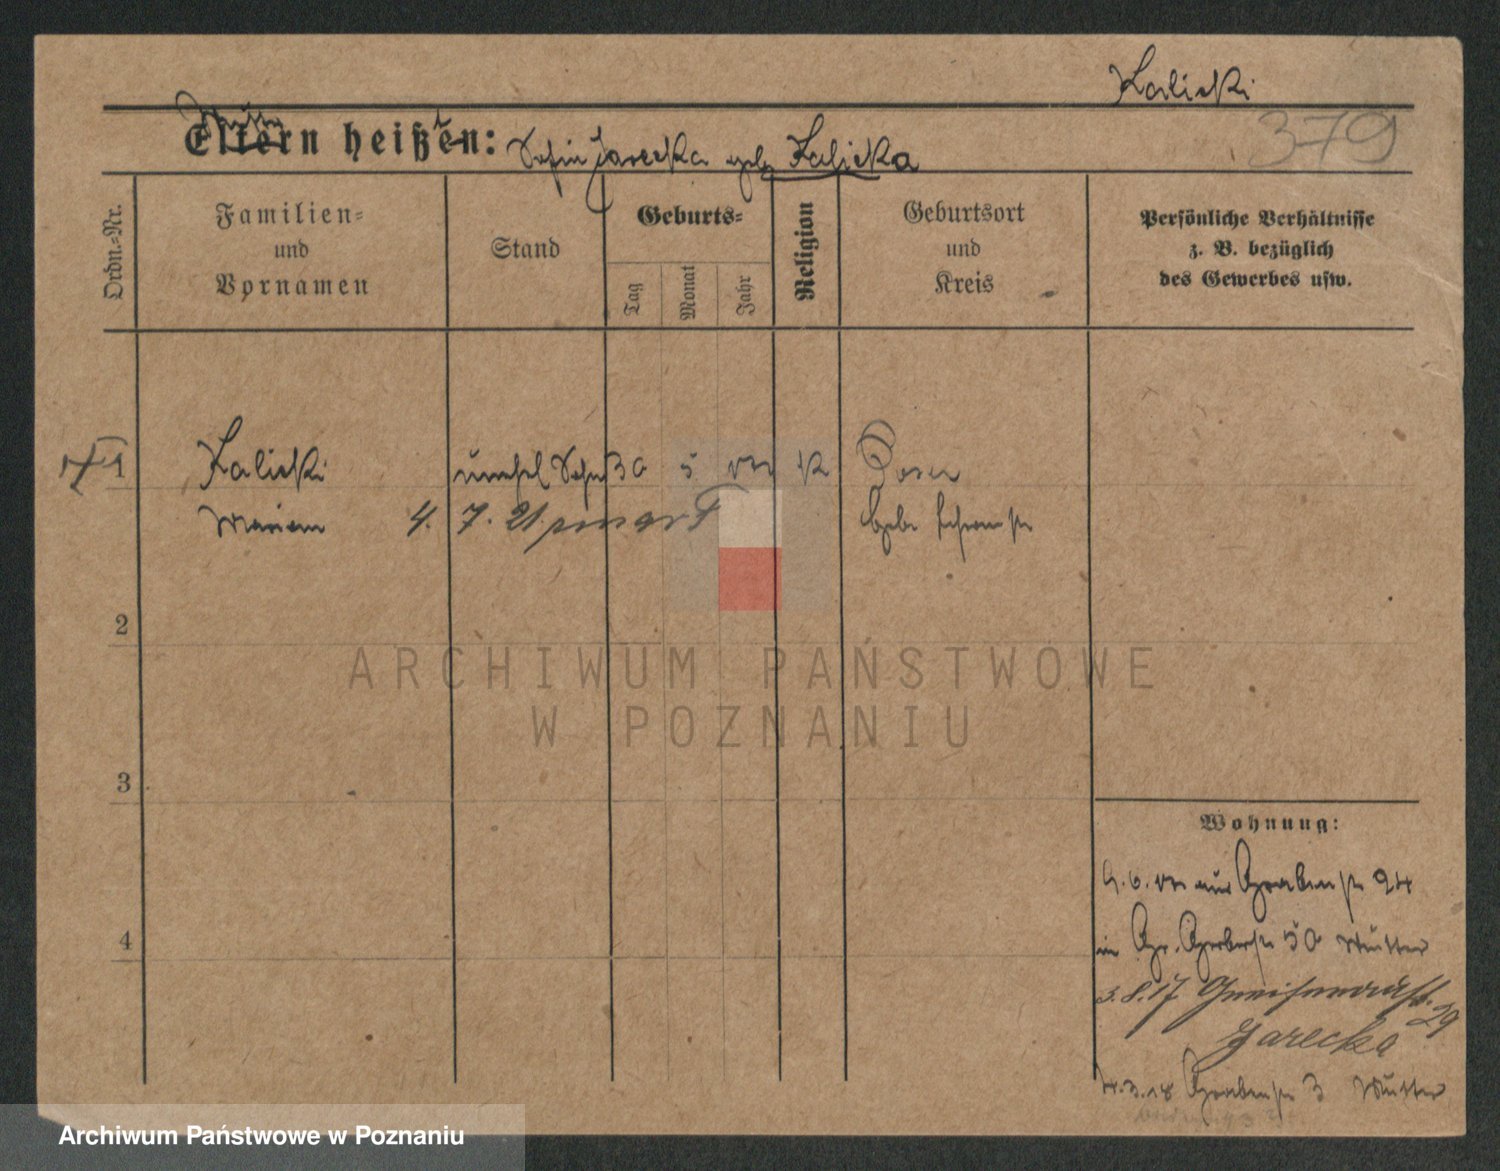 Kalicki
379
Mutter
Eltern heißen: Sofia Jarecka geb Kalicka
Ordn.-Nr.
Familien-
und
Vornamen
Stand
Geburts-
Tag
Monat
Jahr
Religion
Geburtsort
und
Kreis
Persönliche Verhältnisse
z. B. bezüglich
des Gewerbes usw.
1
Kalicki
unehel Sohn 30 5 K Posen
Marian 4. 7. 21
2
ARCHIWUM PAŃSTWOWE
W POZNANIU
3
Wohnung:
aus Grabenstr 24
4
in Gr. Gerberstr 50 Mutter
3.8.17 Gneisenaustr. 29
Jarecka
4.3.18 Grabenstr 3 Mutter
Archiwum Państwowe w Poznaniu